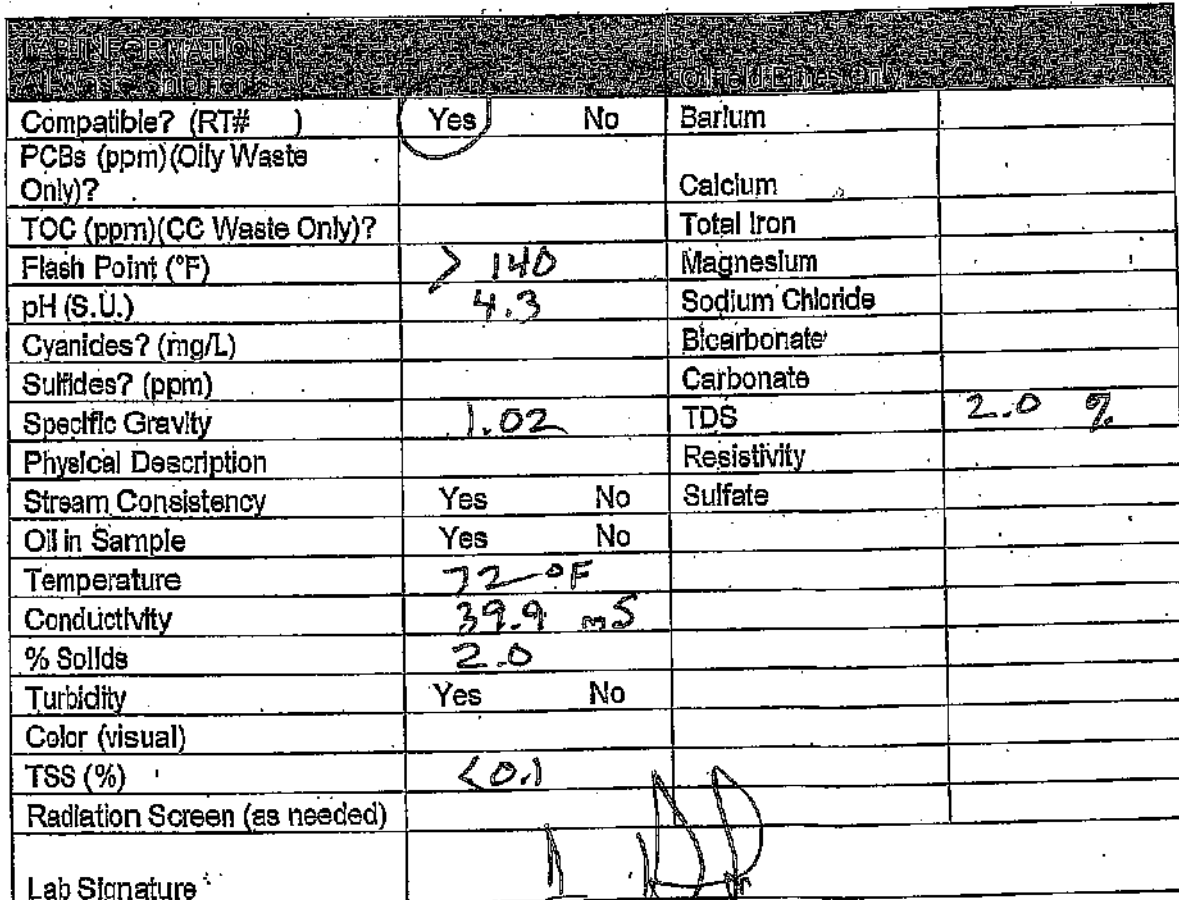 LAB INFORMATION
All Waste Shipments
Oilfield Brines Only
Compatible? (RT# ) Yes No Barium
PCBs (ppm)(Oily Waste
Only)? Calcium
TOC (ppm)(CC Waste Only)? Total Iron
Flash Point (°F) > 140 Magnesium
pH (S.U.) 4.3 Sodium Chloride
Cyanides? (mg/L) Bicarbonate
Sulfides? (ppm) Carbonate
Specific Gravity 1.02 TDS 2.0 %
Physical Description Resistivity
Stream Consistency Yes No Sulfate
Oil in Sample Yes No
Temperature 72 °F
Conductivity 39.9 mS
% Solids 2.0
Turbidity Yes No
Color (visual)
TSS (%) <0.1
Radiation Screen (as needed)
Lab Signature